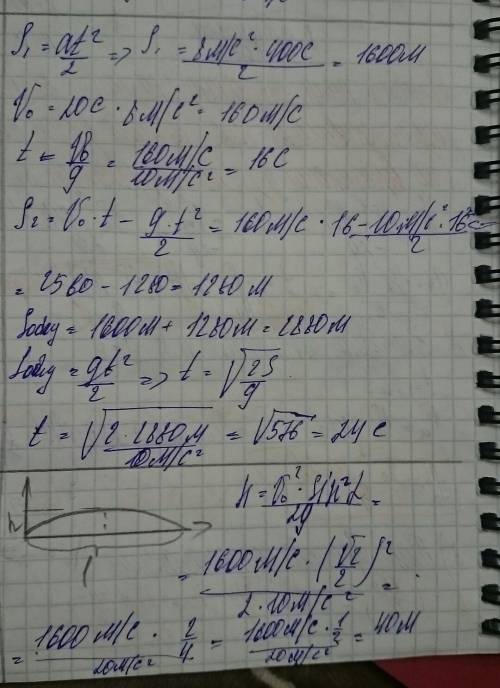 S₁ = at²/2 => S₁ = 8м/с² · 400с/2 = 1600м
V₀ = 20с · 8м/с² = 160м/с
t = V₀/g = 160м/с/10м/с² = 16с
S₂ = V₀ · t - g · t²/2 = 160м/с · 16 - 10м/с² · 16²с/2
= 2560 - 1280 = 1280м
Sобщ = 1600м + 1280м = 2880м
Sобщ = gt²/2 => t = √2S/g
t = √2 · 2880м/10м/с² = √576 = 24с
h
l
H = V₀² · sin²α/2g =
= 1600м/с · (√2/2)²/2 · 10м/с² =
= 1600м/с · 2/4/20м/с² = 1600м/с · 1/2/20м/с² = 40м